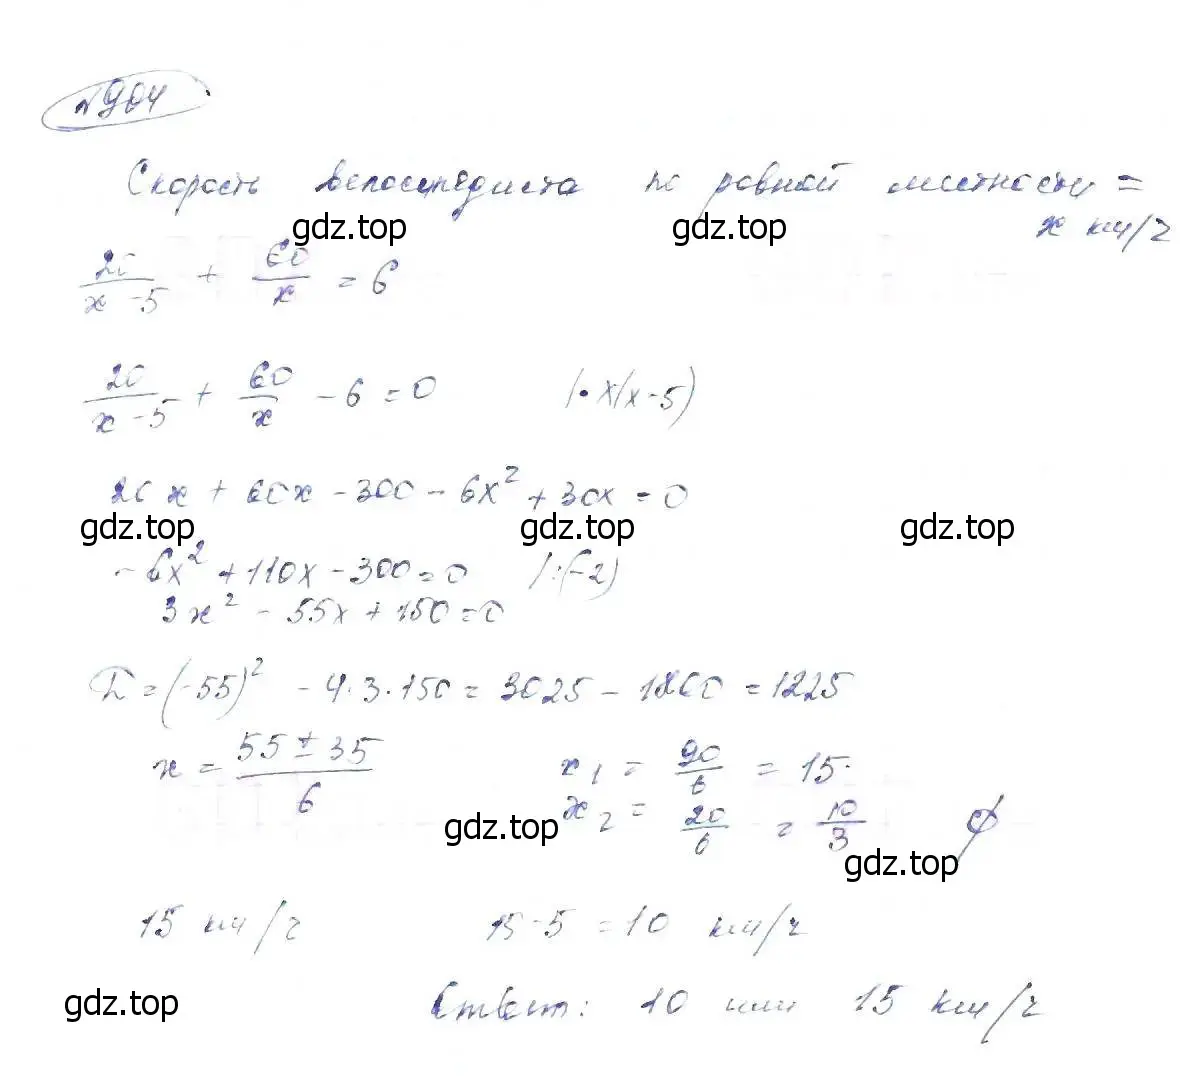 №904
Скорость велосипедиста по ровной местности =
x км/ч
gdz.top gdz.top
20/(x-5) + 60/x = 6
20/(x-5) + 60/x - 6 = 0 | • x(x-5)
20x + 60x - 300 - 6x² + 30x = 0
gdz.top gdz.top gdz.top
-6x² + 110x - 300 = 0 | :(-2)
3x² - 55x + 150 = 0
D = (-55)² - 4·3·150 = 3025 - 1800 = 1225
x = (55 ± 35)/6 x₁ = 90/6 = 15.
x₂ = 20/6 = 10/3 ∅
gdz.top gdz.top
15 км/ч 15-5 = 10 км/ч
gdz.top
Ответ: 10 или 15 км/ч